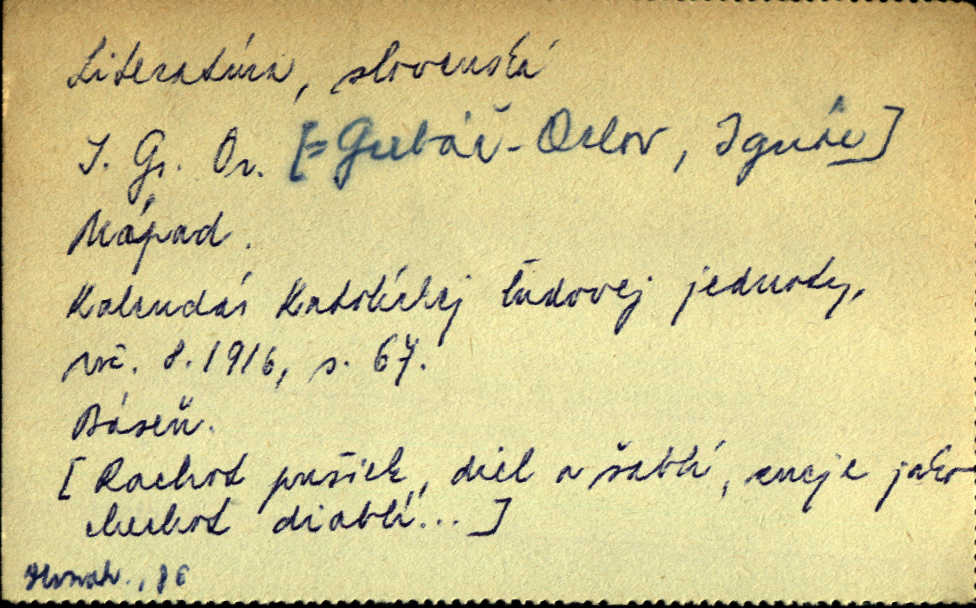 Literatúra, slovenská
I. Gr. Or. [= Grebáč-Orlov, Ignác]
Nápad.
Kalendár Katolíckej ľudovej jednoty,
roč. 8. 1916, s. 67.
Báseň.
[Rachot pušiek, diel a šablí, zneje jako
chechot diablí... ]
, 86